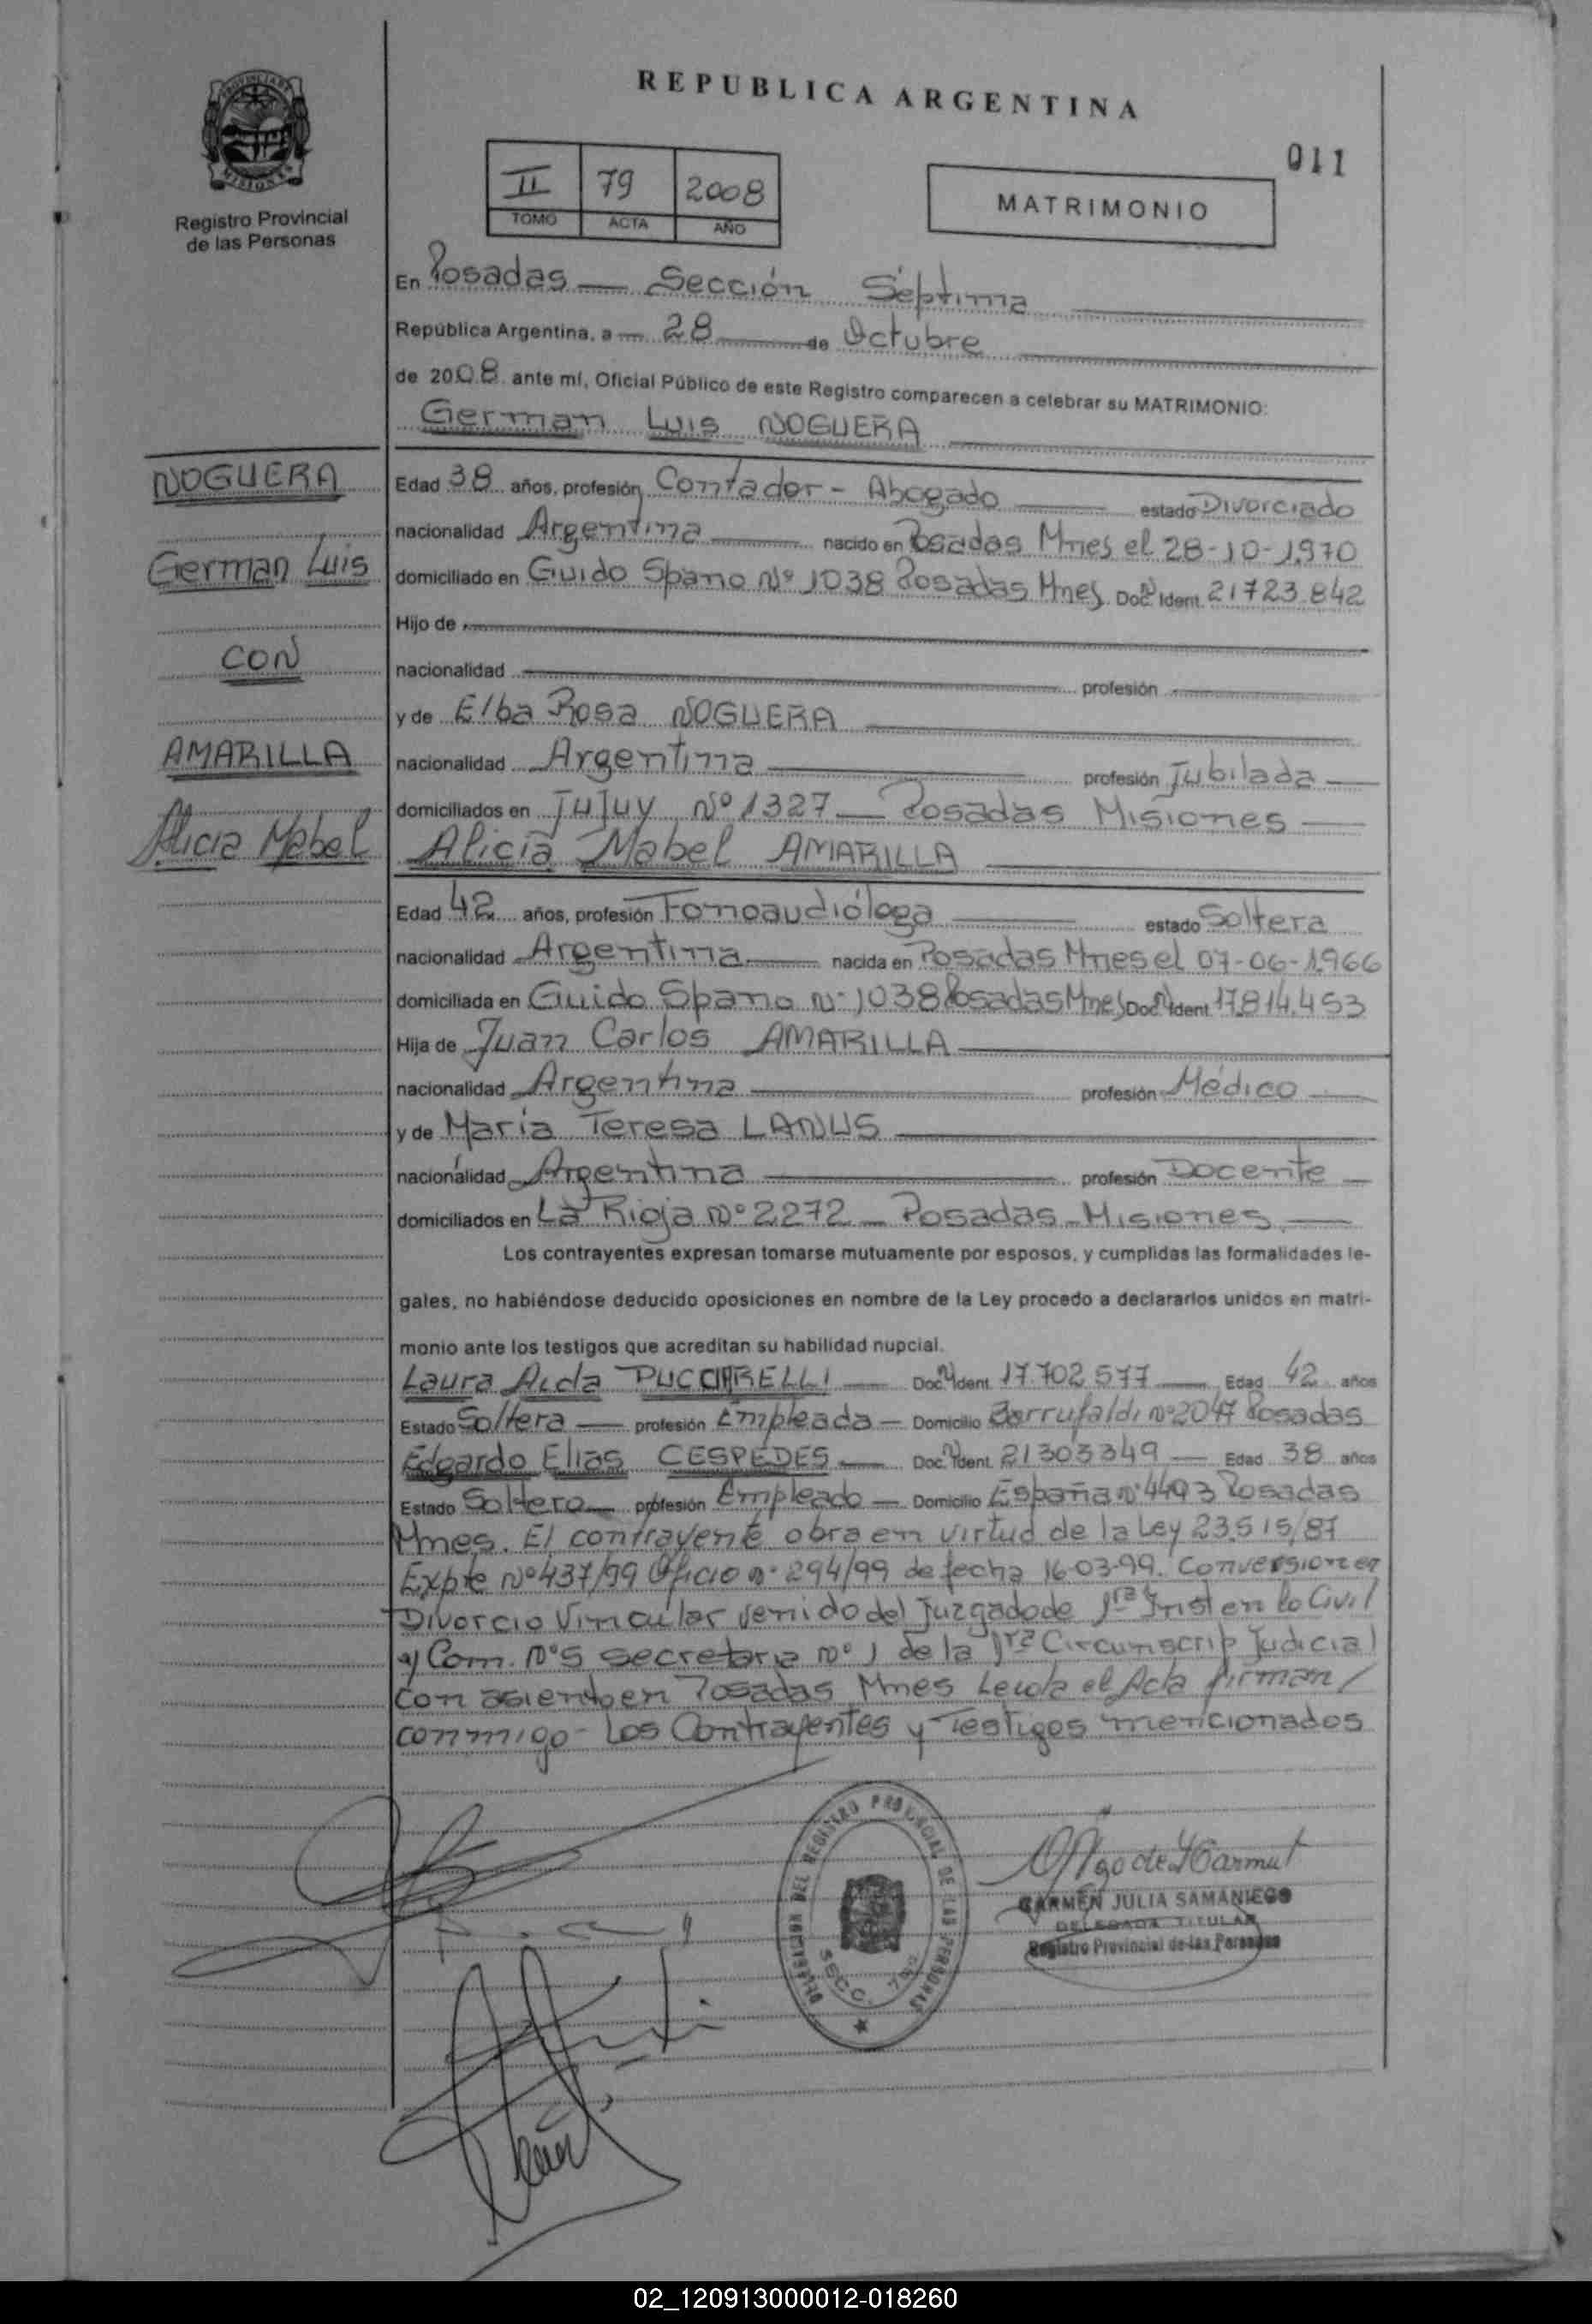 REPUBLICA ARGENTINA
011
II 79 2008
TOMO ACTA AÑO
MATRIMONIO
PROVINCIA DE MISIONES
Registro Provincial
de las Personas
En Posadas — Sección Séptima
República Argentina, a 28 de Octubre
de 2008 ante mí, Oficial Público de este Registro comparecen a celebrar su MATRIMONIO:
German Luis NOGUERA
NOGUERA
German Luis
CON
AMARILLA
Alicia Mabel
Edad 38 años, profesión Contador - Abogado estado Divorciado
nacionalidad Argentina nacido en Posadas Mnes el 28-10-1970
domiciliado en Guido Spano Nº 1038 Posadas Mnes Doc. N Ident. 21723.842
Hijo de
nacionalidad profesión
y de Elba Rosa NOGUERA
nacionalidad Argentina profesión Jubilada
domiciliados en Jujuy Nº 1327 — Posadas Misiones
Alicia Mabel AMARILLA
Edad 42 años, profesión Fonoaudióloga estado Soltera
nacionalidad Argentina nacida en Posadas Mnes el 07-06-1966
domiciliada en Guido Spano Nº 1038 Posadas Mnes Doc. N Ident. 17.814.453
Hija de Juan Carlos AMARILLA
nacionalidad Argentina profesión Médico
y de María Teresa LANUS
nacionalidad Argentina profesión Docente
domiciliados en La Rioja Nº 2272 — Posadas - Misiones
Los contrayentes expresan tomarse mutuamente por esposos, y cumplidas las formalidades le-
gales, no habiéndose deducido oposiciones en nombre de la Ley procedo a declararlos unidos en matri-
monio ante los testigos que acreditan su habilidad nupcial.
Laura Aida PUCCIARELLI Doc. N Ident. 17.702.577 Edad 42 años
Estado Soltera profesión Empleada — Domicilio Barrufaldi Nº 2047 Posadas
Edgardo Elias CESPEDES Doc. N Ident. 21303349 Edad 38 años
Estado Soltero profesión Empleado — Domicilio España Nº 4493 Posadas
Mnes. El contrayente obra en virtud de la Ley 23.515/87
Expte Nº 437/99 Oficio nº 294/99 de fecha 16-03-99. Conversion en
Divorcio Vincular venido del Juzgado de 1ra Inst en lo Civil
y Com. Nº 5 secretaria Nº 1 de la 1ra Circunscrip Judicial
con asiento en Posadas Mnes Leida el Acta firman/
conmigo - Los Contrayentes y Testigos mencionados
DELEGACION DEL REGISTRO PROVINCIAL DE LAS PERSONAS
SECC. 7ma
CARMEN JULIA SAMANIEGO
DELEGADA TITULAR
Registro Provincial de las Personas
02_120913000012-018260